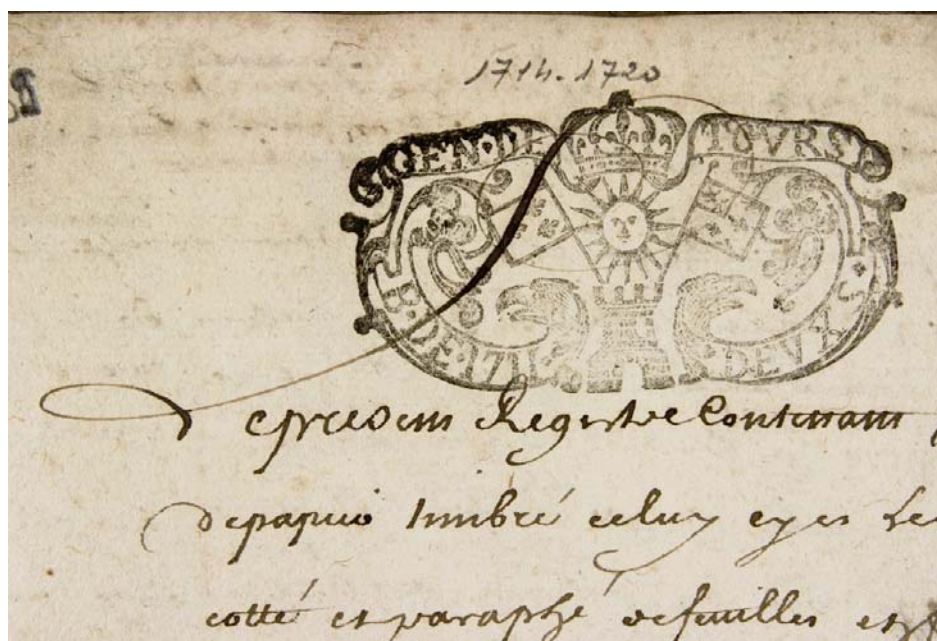 1714-1720
GEN·DE TOVRS
B·DE·1711 DEVX·S
Le present Registre Contenant
de papier timbré celuy cy es
cotté et paraphé de feuilles et